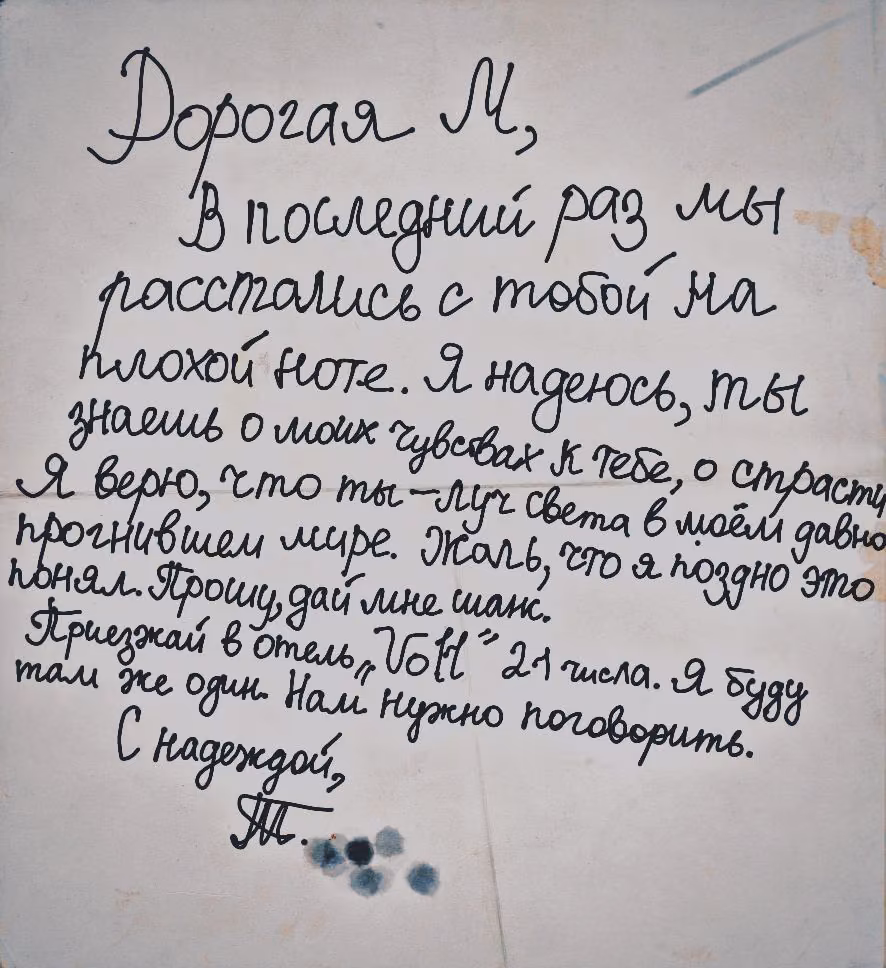 Дорогая М,
В последний раз мы
расстались с тобой на
плохой ноте. Я надеюсь, ты
знаешь о моих чувствах к тебе, о страсти
Я верю, что ты – луч света в моём давно
прогнившем мире. Жаль, что я поздно это
понял. Прошу, дай мне шанс.
Приезжай в отель „Volt” 21 числа. Я буду
там же один. Нам нужно поговорить.
С надеждой,
Т.